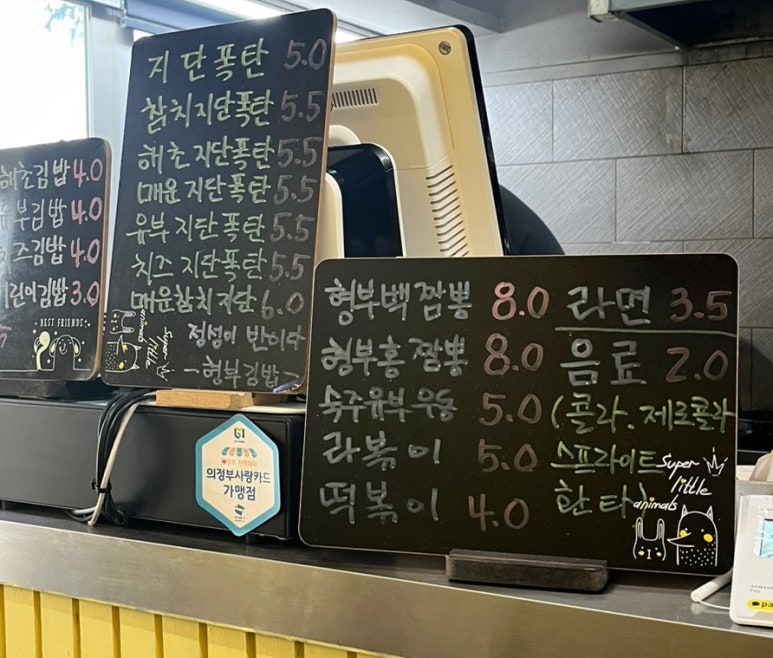 해초김밥 4.0
유부김밥 4.0
치즈김밥 4.0
어린이김밥 3.0
BEST FRIENDS
지단폭탄 5.0
참치지단폭탄 5.5
해초지단폭탄 5.5
매운지단폭탄 5.5
유부지단폭탄 5.5
치즈지단폭탄 5.5
매운참치지단 6.0
정성이 반이다
-형부김밥-
Super little animals
형부백짬뽕 8.0
형부홍짬뽕 8.0
숙주유부우동 5.0
라볶이 5.0
떡볶이 4.0
라면 3.5
음료 2.0
(콜라.제로콜라
스프라이트
환타)
Super little animals
의정부사랑카드
가맹점
pa